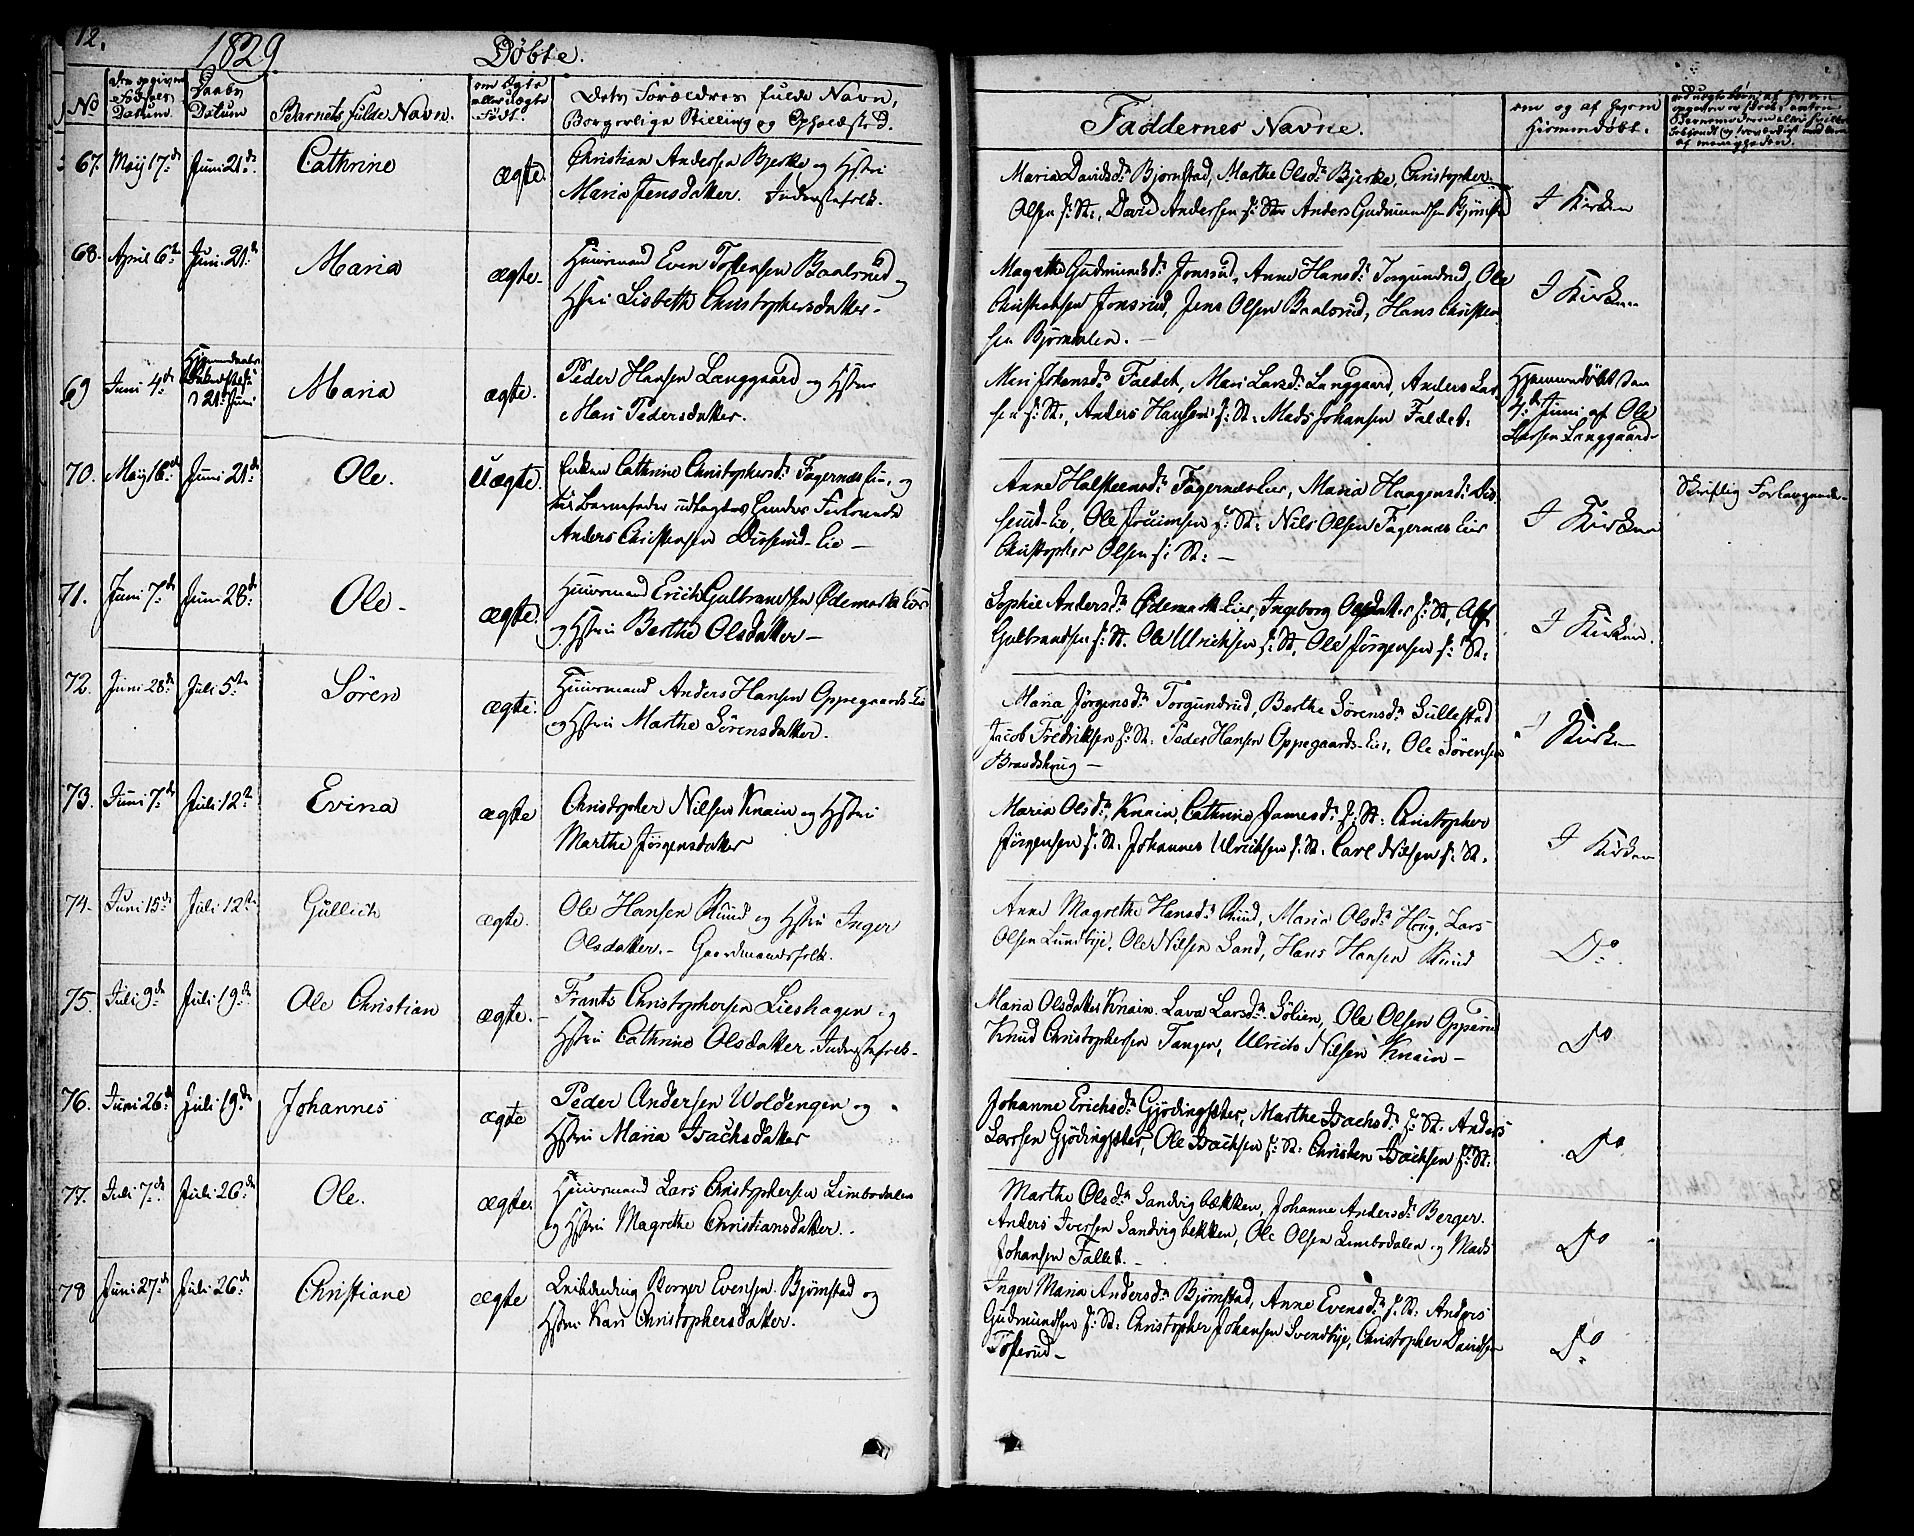 12.
1829
Döbte.
No
den opgivne Fødsels Datum.
Daabs Datum
Barnets fulde Navn.
om ægte eller uægte Født.
Dets Forældres fulde Navn,
Borgerlige Stilling og Opholdssted.
Faddernes Navne.
om og af hvem
hjemmedøbt.
67. Maij 17de Juni 21de Cathrine ægte. Christian Andersen Bjerke og Hstrü
Maria Jensdatter. Inderstefolk.
Maria Davidsdr Bjørnstad, Marthe Olsdr Bjerke, Christopher
Olsen f: St:, David Andersen f: St: Anders Gudmundsen
I Kirken
68. April 6te Juni 21de Maria ægte. Huusmand Even Tostensen Baalsrud og
Hstrü Lisbeth Christophersdatter.
Magrethe Gudmundsdr Jonsrud, Anne Hansdr Torgundrud, Ole
Christensen Jonsrud, Jens Olsen Baalsrud, Hans Christen-
sen Bjørndalen.
I Kirken
69 Juni 4de 21de Juni Maria ægte. Peder Hansen Langgaard og Hstrü
Mari Pedersdatter.
Mari Johansdr Faldet, Mari Larsdr Langgaard, Anders Lar-
sen f: St:, Anders Hansen f: St: Mads Johansen Faldet.
Hjemmedøbt den
4de Juni af Ole
Larsen Langgaard
70. Maij 16de Juni 21de Ole. Uægte. Enken Cathrine Christophersdr Fagernæs Eie, og
til Barnefader udlagtes hendes Forlovede
Anders Christensen Eie
Anne Halsteensdr Fagernæs Eie, Maria Haagensdr
Eie, Ole f: St: Nils Olsen Fagernæs Eie
Christopher Olsen f: St:
I Kirken
Skriftlig Forlangende
71. Juni 7de Juni 28de Ole ægte. Huusmand Erich Gulbrandsen Ødemark Eie
og Hstrü Berthe Olsdatter
Sophie Andersdr Ødemark Eie, Ingeborg Olsdatter f: St,
Gulbrandsen f: St. Ole Ulrichsen f: St. Ole Jørgensen f: St:
I Kirken.
72. Juni 28de Juli 5te Sören ægte. Huusmand Anders Hansen Oppegaards Eie
og Hstrü Marthe Sörensdatter.
Maria Jørgensdr Torgundrud, Berthe Sörensdr Gullestad
Jacob Fredriksen f: St: Peder Hansen Oppegaards Eie, Ole Sörensen
Brandskoug
I Kirken
73. Juni 7de Juli 12te Evina ægte Christopher Nilsen Knain og Hstrü
Marthe Jörgensdatter
Maria Olsdr Knain, Cathrine f: St: Christopher
Jørgensen f: St. Johannes Ulrichsen f: St. Carl Nilsen f: St.
I Kirken
74. Juni 15de Juli 12te Gullich ægte. Ole Hansen Ruud og Hstrü Inger
Olsdatter. Gaardmandsfolk.
Anne Magrethe Hansdr Ruud, Maria Olsdr Houg, Lars
Olsen Lundbye, Ole Nilsen Sand, Hans Hansen Ruud
Do
75. Juli 9de Juli 19de Ole Christian ægte. Frants Christophersen Lieshagen og
Hstrü Cathrine Olsdatter. Inderstefolk.
Maria Olsdatter Knain. Lava Larsdr Sölien, Ole Olsen Opperud
Knud Christophersen Tangen, Ulrich Nilsen Knain
Do
76. Juni 26de Juli 19de Johannes ægte Peder Andersen Woldengen og
Hstrü Maria Isachsdatter
Johanne Erichsdr Gjödingsæter, Marthe Isachsdr f: St: Anders
Larsen Gjödingsæter, Ole Isachsen f: St: Christen Isachsen f: St:
Do
77. Juli 7de Juli 26de Ole. ægte. Huusmand Lars Christophersen Limbodalen
og Hstrü Magrethe Christiansdatter.
Marthe Olsdr Sandvigbækken, Johanne Andersdr Berger.
Anders Iversen Sandvigbekken, Ole Olsen Limbodalen og Mads
Johansen Fallet.
Do
78 Juni 27de Juli 26de Christiane ægte Borger Evensen Bjørnstad og
Hstrü Kari Christophersdatter.
Inger Maria Andersdr Bjørnstad, Anne Evensdr f: St: Anders
Gudmundsen f: St: Christopher Johansen Svendbye, Christopher Davidsen
Tofterud
Do